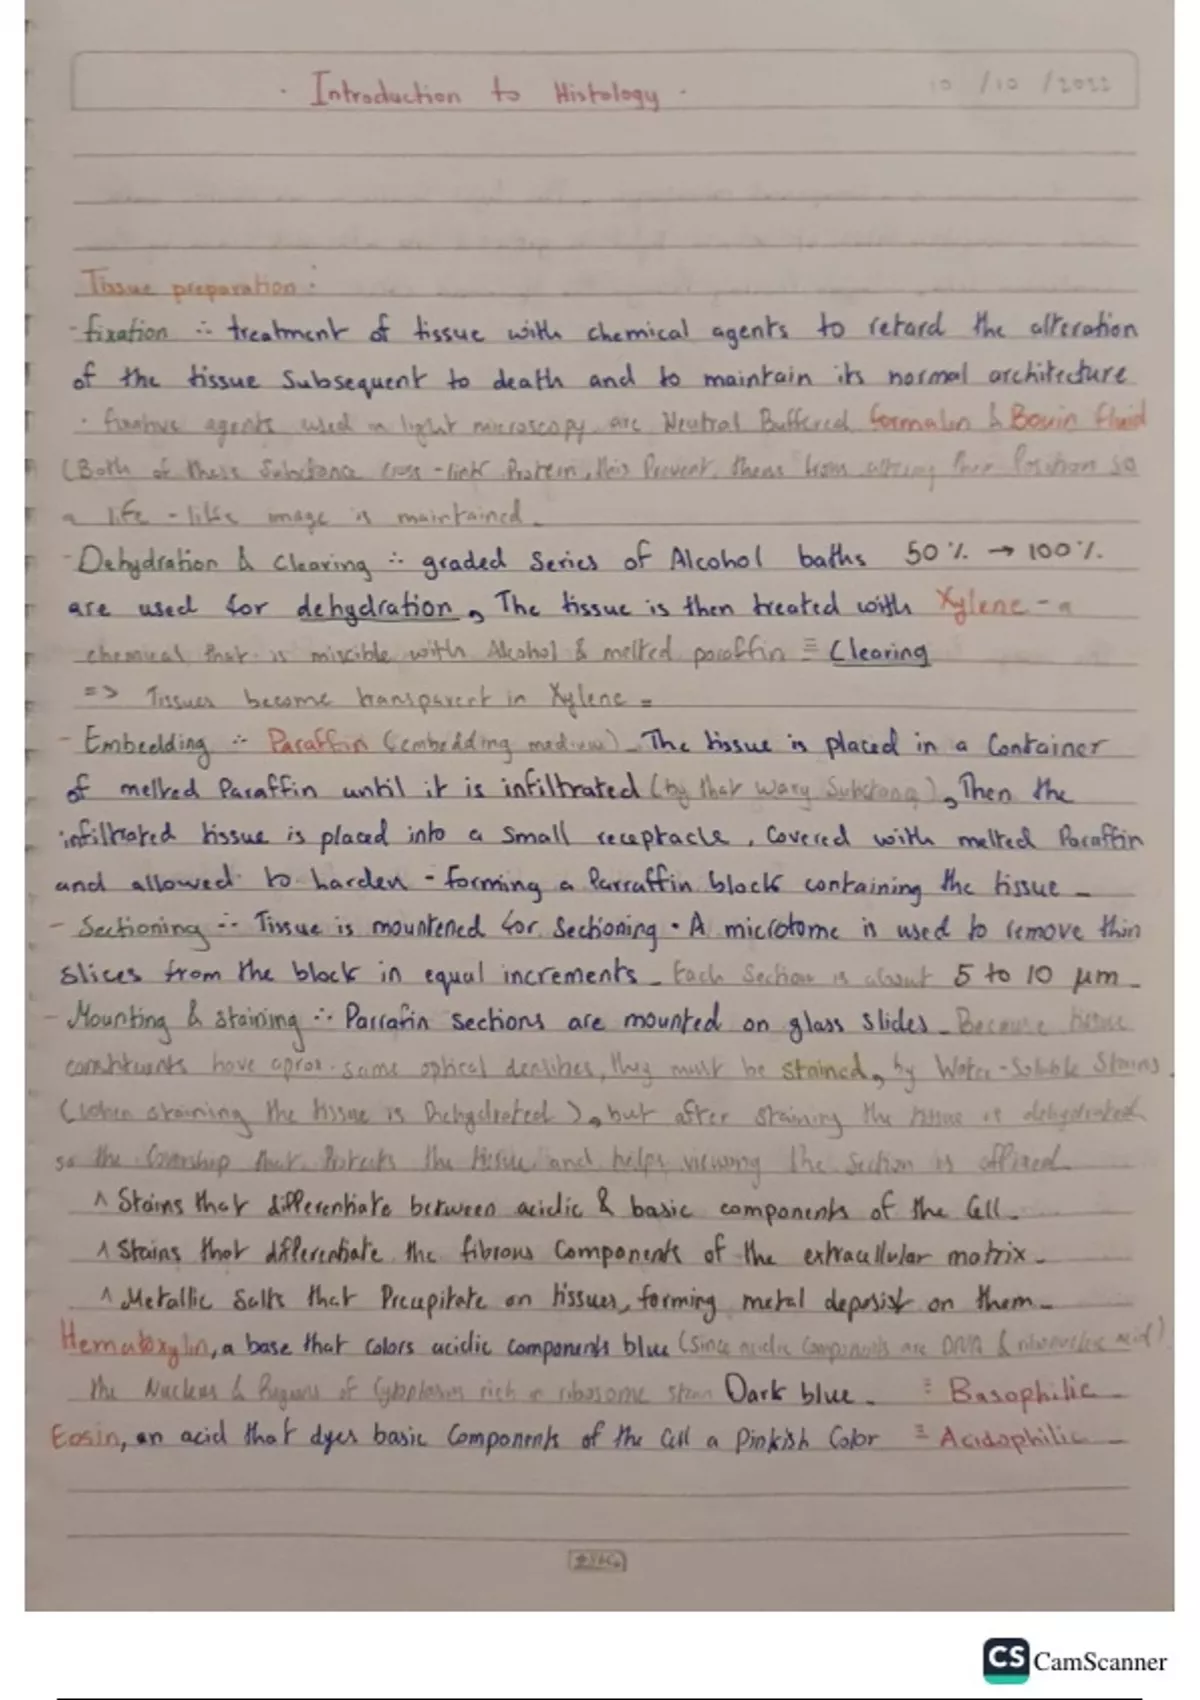 · Introduction to Histology ·
10 /10 /2022
Tissue preparation :
- fixation ∴ treatment of tissue with chemical agents to retard the alteration
of the tissue Subsequent to death and to maintain its normal architecture
· fixative agents used in light microscopy are Neutral Buffered formalin & Bouin fluid
(Both of these Substance cross-link Protein, this Prevent them from altering their Position so
a life - like image is maintained.
- Dehydration & Clearing ∴ graded Series of Alcohol baths 50 % → 100 %.
are used for dehydration, The tissue is then treated with Xylene - a
chemical that is miscible with Alcohol & melted paraffin ≡ Clearing
=> Tissues become transparent in Xylene =
- Embedding ∴ Paraffin (embedding medium). The tissue is placed in a Container
of melted Paraffin until it is infiltrated (by that waxy Substance), Then the
infiltrated tissue is placed into a small receptacle, Covered with melted Paraffin
and allowed to harden - forming a Parraffin block containing the tissue -
- Sectioning ∴ Tissue is mountened for Sectioning · A microtome is used to remove thin
Slices from the block in equal increments - Each Section is about 5 to 10 μm -
- Mounting & staining ∴ Parrafin sections are mounted on glass slides - Because tissue
constituents have aprox. same optical densities, they must be stained, by Water-Soluble Stains
(when staining the tissue is Rehydrated), but after staining the tissue is dehydrated
so the Coverslip that Protects the tissue and helps viewing the Section is affixed
^ Stains that differentiate between acidic & basic components of the Cell -
^ Stains that differentiate the fibrous Components of the extracellular matrix -
^ Metallic Salts that Precipitate on tissues, forming metal deposist on them -
Hematoxylin, a base that colors acidic components blue (since acidic Components are DNA & ribonucleic acid)
the Nucleus & Regions of Cytoplasm rich in ribosome stain Dark blue - ≡ Basophilic -
Eosin, an acid that dyes basic Components of the Cell a Pinkish Color ≡ Acidophilic -
CS CamScanner